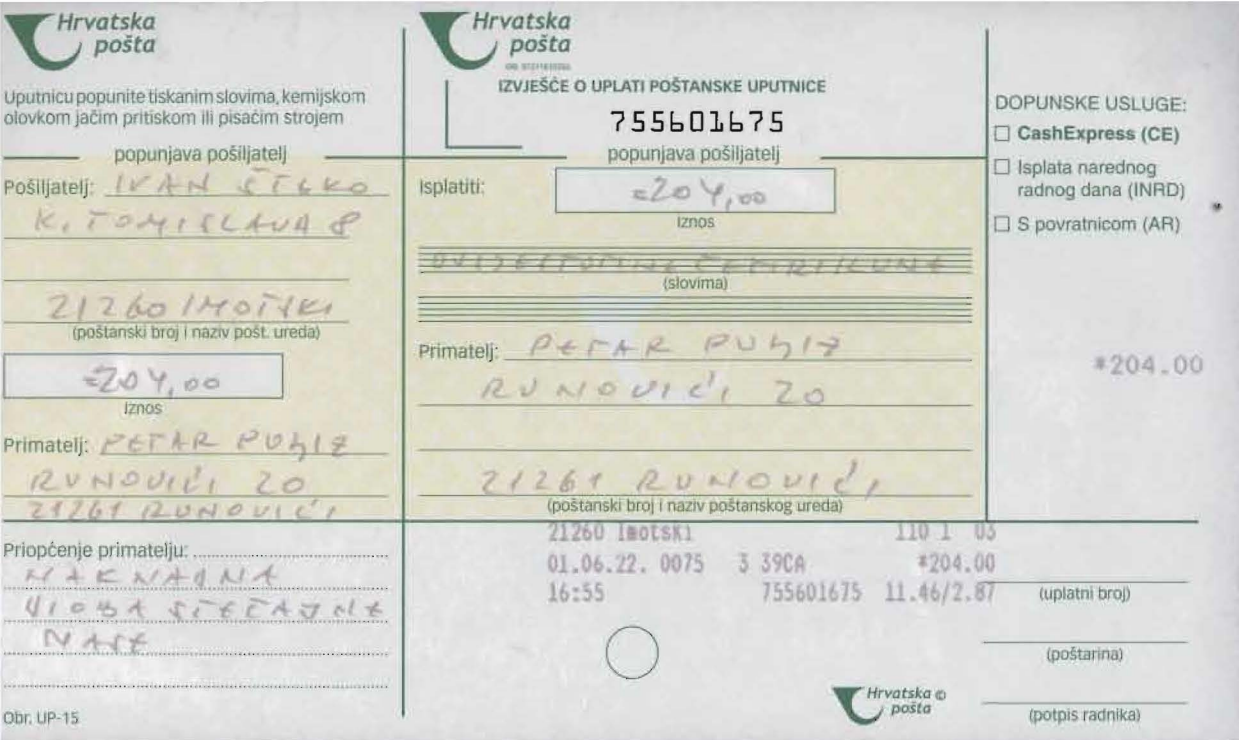 Hrvatska
pošta
Uputnicu popunite tiskanim slovima, kemijskom
olovkom jačim pritiskom ili pisaćim strojem
popunjava pošiljatelj
Pošiljatelj: IVAN
K. TOMISLAVA 8
21260 IMOTSKI
(poštanski broj i naziv pošt. ureda)
=204,00
iznos
Primatelj: PETAR
RUNOVIĆI 20
21261 RUNOVIĆI
Priopćenje primatelju:
NAKNADNA
DIOBA STEČAJNE
MASE
Obr. UP-15
Hrvatska
pošta
IZVJEŠĆE O UPLATI POŠTANSKE UPUTNICE
755601675
popunjava pošiljatelj
Isplatiti: =204,00
iznos
(slovima)
Primatelj: PETAR
RUNOVIĆI 20
21261 RUNOVIĆI
(poštanski broj i naziv poštanskog ureda)
21260 Imotski 110 1 03
01.06.22. 0075 3 39CA *204.00
16:55 755601675 11.46/2.87
Hrvatska ©
pošta
DOPUNSKE USLUGE:
☐ CashExpress (CE)
☐ Isplata narednog
radnog dana (INRD)
☐ S povratnicom (AR)
*204.00
(uplatni broj)
(poštarina)
(potpis radnika)